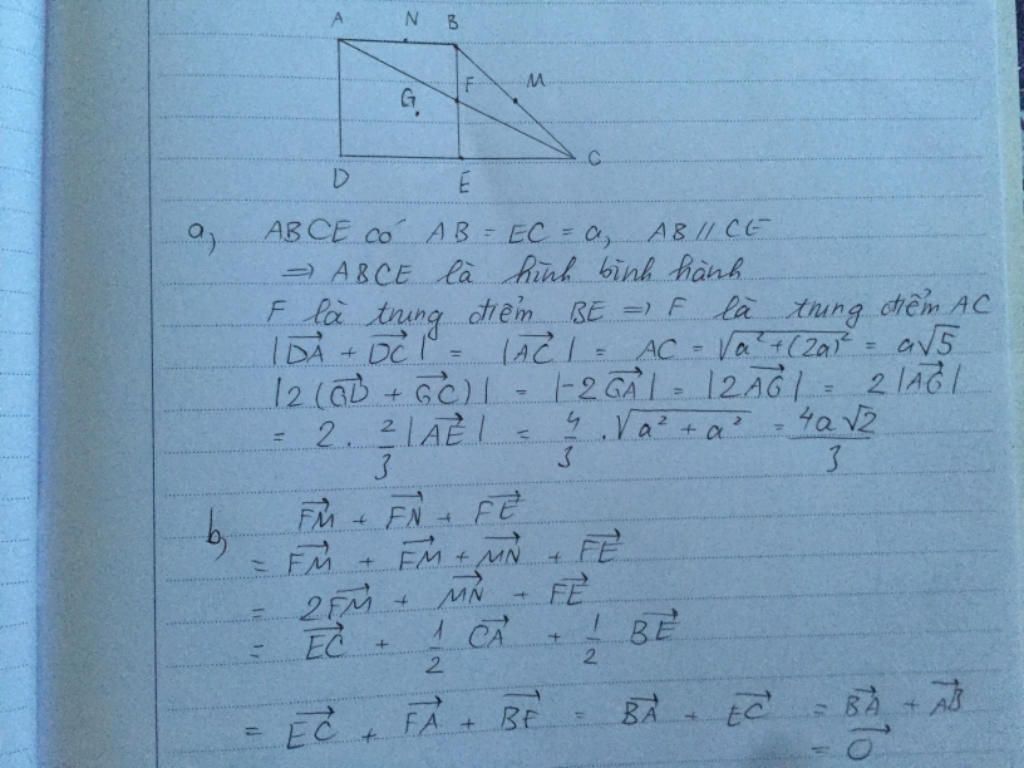 A N B
F M
G
D E C
a, ABCE có AB = EC = a, AB // CE
⇒ ABCE là hình bình hành
F là trung điểm BE ⇒ F là trung điểm AC
|DA→ + DC→| = |AC→| = AC = √(a² + (2a)²) = a√5
|2(GD→ + GC→)| = |-2GA→| = |2AG→| = 2|AG→|
= 2 . 2/3 |AE→| = 4/3 . √(a² + a²) = 4a√2/3
b, FM→ + FN→ + FE→
= FM→ + FM→ + MN→ + FE→
= 2FM→ + MN→ + FE→
= EC→ + 1/2 CA→ + 1/2 BE→
= EC→ + FA→ + BF→ = BA→ + EC→ = BA→ + AB→
= O→